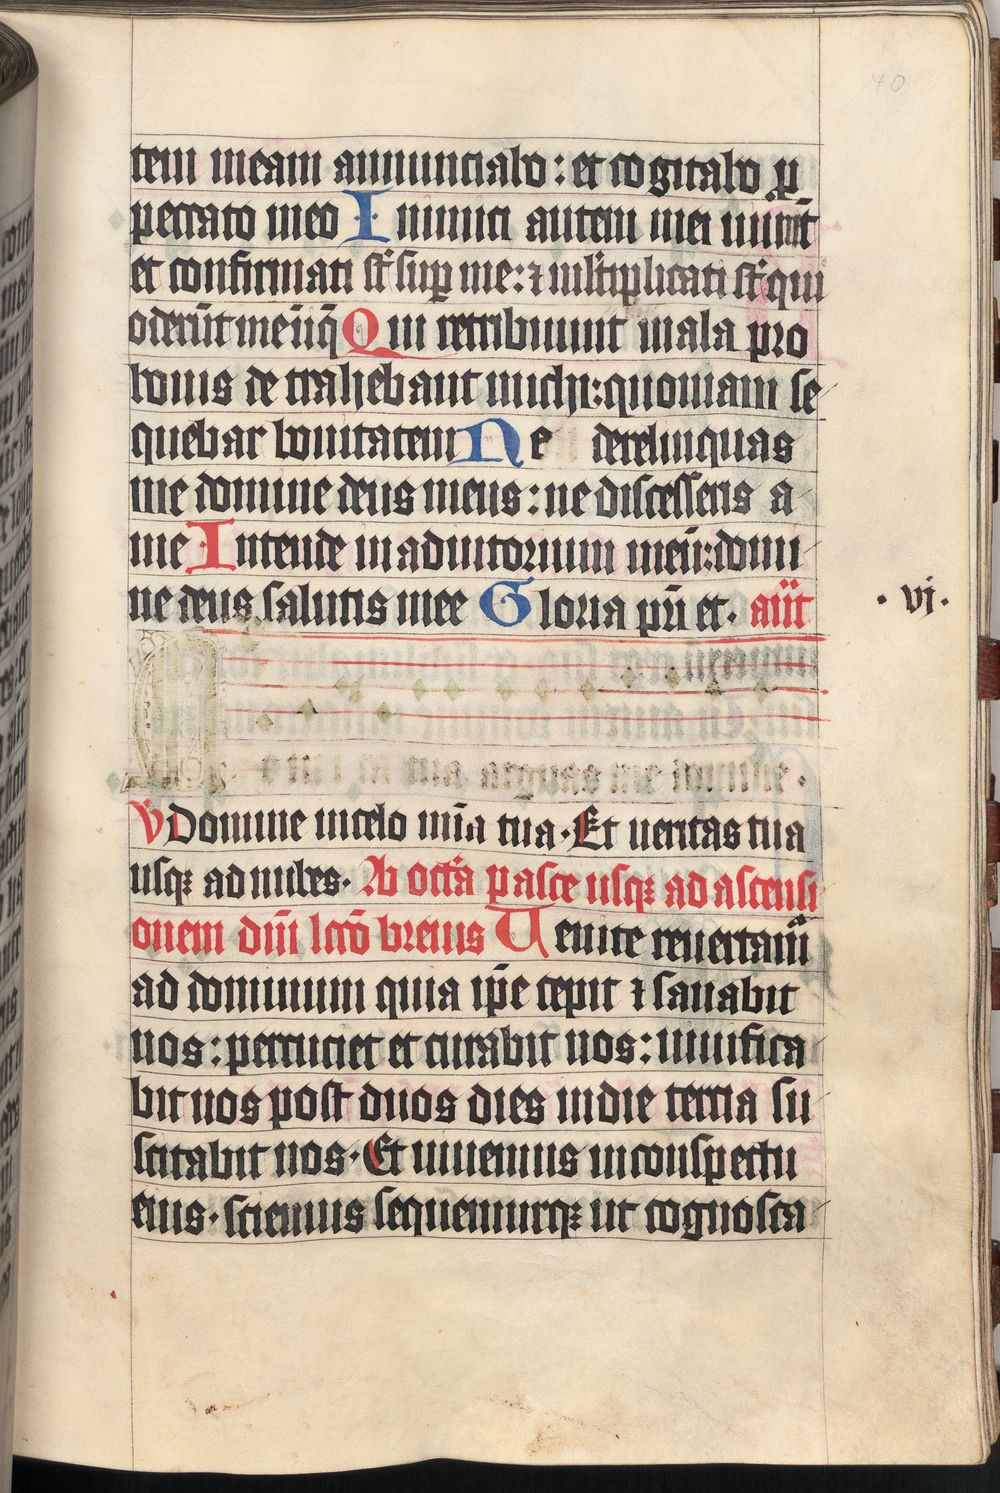 40
tem meam annunciabo : et cogitabo p̱
peccato meo Inimici autem mei uiuūt
et confirmati st̄ sup̱ me: ⁊ ml̄tiplicati st̄ qui
oderūt me īiq̄ Qui retribuunt mala pro
bonis de trahebant michi: quoniam se
quebar bonitatem Ne derelinquas
me domine deus meus : ne discesseris a
me Intende in adiutorium meū: domi
ne deus salutis mee Gloria pr̄i et. ant̄
· vi ·
arguas me domine .
V Domine in celo mīa tua · Et ueritas tua
usqꝫ ad nubes · Ab octā pasce usqꝫ ad ascensi
onem dn̄i lcō breuis Uenite reuertam̄
ad dominum quia ip̄e cepit ⁊ sanabit
nos : percuciet et curabit nos : uiuifica
bit nos post duos dies in die tercia su
scitabit nos · Et uiuemus in conspectu
eius · sciemus sequemurqꝫ ut cognosca